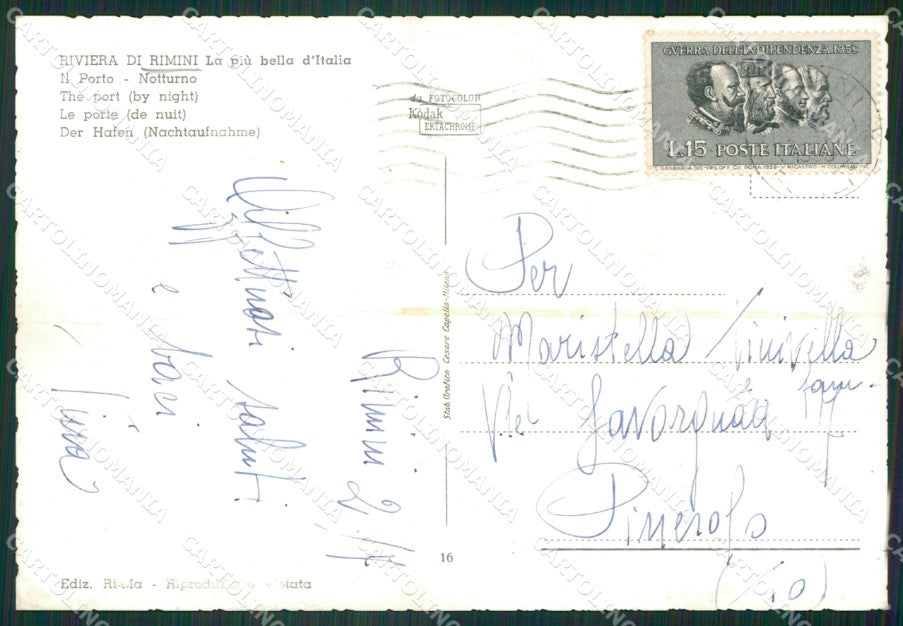 RIVIERA DI RIMINI La più bella d'Italia
Il Porto - Notturno
The port (by night)
Le porte (de nuit)
Der Hafen (Nachtaufnahme)
da FOTOCOLOR
Kodak
EKTACHROME
GUERRA DELL'INDIPENDENZA 1859
L.15 POSTE ITALIANE
Rimini 2/
Affettuosi saluti
e baci
Per
Maristella
e fam.
17
Pinerolo
(To)
Stab. Grafico Cesare Capello - Milano
16
Ediz. - Riproduzione vietata
CARTOLINOMANIA